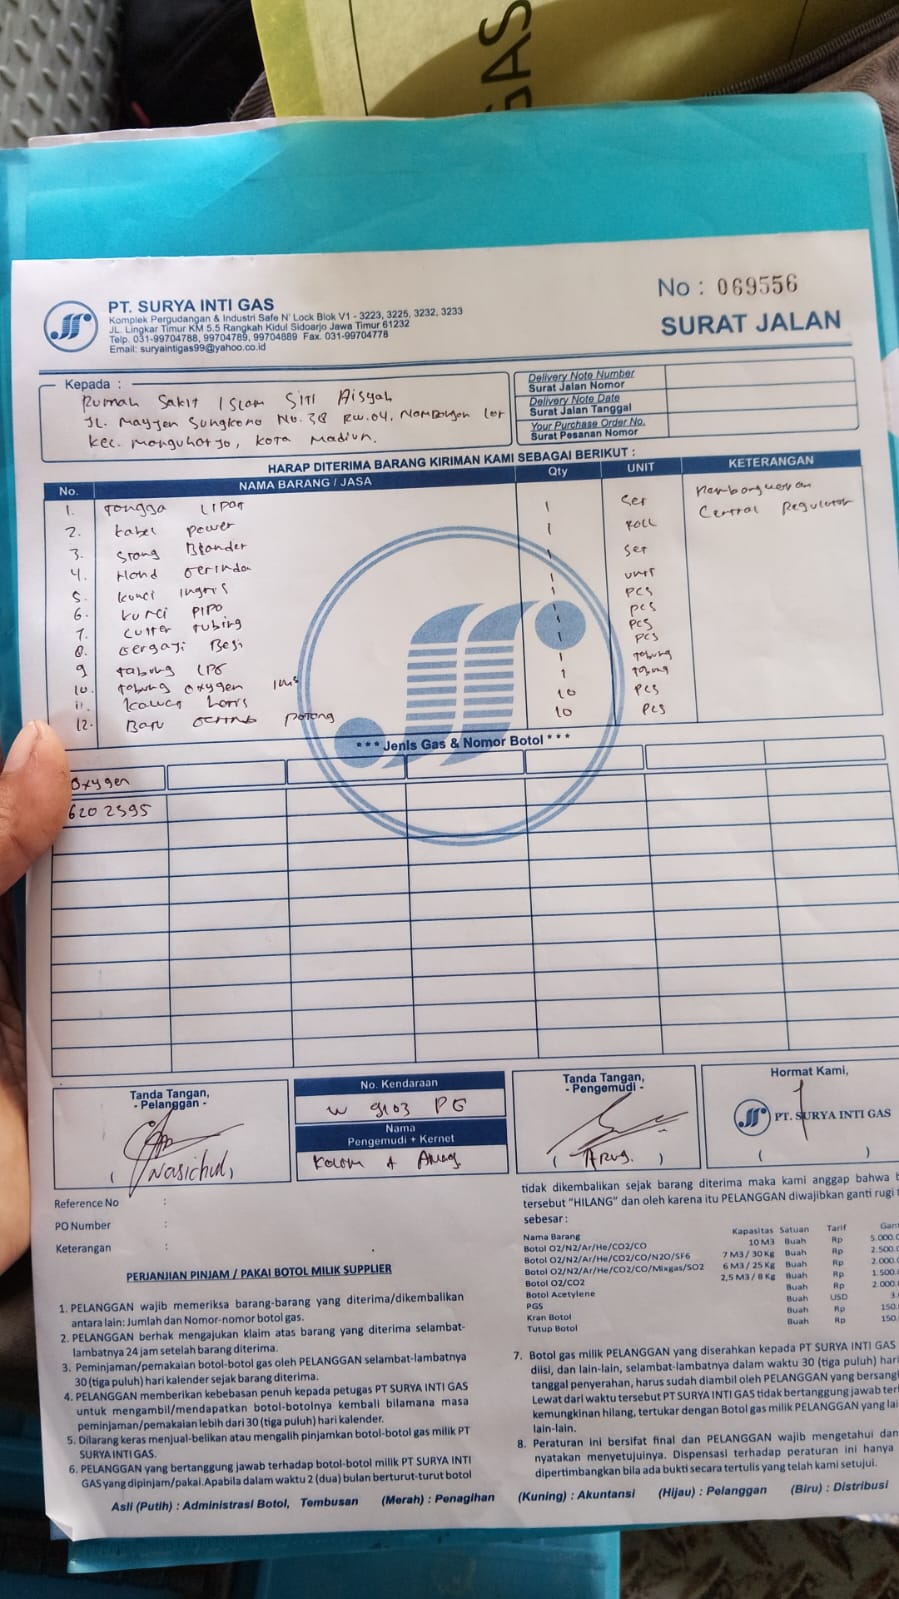 GAS
PT. SURYA INTI GAS
Komplek Pergudangan & Industri Safe N' Lock Blok V1 - 3223, 3225, 3232, 3233
JL. Lingkar Timur KM 5.5 Rangkah Kidul Sidoarjo Jawa Timur 61232
Telp. 031-99704788, 99704789, 99704889 Fax. 031-99704778
Email: suryaintigas99@yahoo.co.id
No : 069556
SURAT JALAN
Kepada :
Rumah Sakit Islam Siti Aisyah
JL. Mayjen Sungkono No. 38 RW.04, Nambangan Lor
Kec. Manguharjo, Kota Madiun.
Delivery Note Number
Surat Jalan Nomor
Delivery Note Date
Surat Jalan Tanggal
Your Purchase Order No.
Surat Pesanan Nomor
HARAP DITERIMA BARANG KIRIMAN KAMI SEBAGAI BERIKUT :
No. NAMA BARANG / JASA Qty UNIT KETERANGAN
1. Tangga Lipat 1 Set Pembongkaran
2. Kabel Power 1 Roll Central Regulator
3. Stang Blander 1 Set
4. Hand Gerinda 1 Unit
5. Kunci Inggris 1 Pcs
6. Kunci Pipa 1 Pcs
7. Cutter Tubing 1 Pcs
8. Gergaji Besi 1 Pcs
9 Tabung LPG 1 Tabung
10. Tabung Oxygen 1m3 1 Tabung
11. Kawat Las 10 Pcs
12. Batu Gerinda Potong 10 Pcs
*** Jenis Gas & Nomor Botol ***
Oxygen
6202595
Tanda Tangan,
- Pelanggan -
(Nasichul)
No. Kendaraan
W 9103 PG
Nama
Pengemudi + Kernet
Tanda Tangan,
- Pengemudi -
( )
Hormat Kami,
PT. SURYA INTI GAS
( )
Reference No :
PO Number :
Keterangan :
PERJANJIAN PINJAM / PAKAI BOTOL MILIK SUPPLIER
1. PELANGGAN wajib memeriksa barang-barang yang diterima/dikembalikan
antara lain: Jumlah dan Nomor-nomor botol gas.
2. PELANGGAN berhak mengajukan klaim atas barang yang diterima selambat-
lambatnya 24 jam setelah barang diterima.
3. Peminjaman/pemakaian botol-botol gas oleh PELANGGAN selambat-lambatnya
30 (tiga puluh) hari kalender sejak barang diterima.
4. PELANGGAN memberikan kebebasan penuh kepada petugas PT SURYA INTI GAS
untuk mengambil/mendapatkan botol-botolnya kembali bilamana masa
peminjaman/pemakaian lebih dari 30 (tiga puluh) hari kalender.
5. Dilarang keras menjual-belikan atau mengalih pinjamkan botol-botol gas milik PT
SURYA INTI GAS.
6. PELANGGAN bertanggung jawab terhadap botol-botol milik PT SURYA INTI
GAS yang dipinjam/pakai. Apabila dalam waktu 2 (dua) bulan berturut-turut botol
tidak dikembalikan sejak barang diterima maka kami anggap bahwa
tersebut "HILANG" dan oleh karena itu PELANGGAN diwajibkan ganti rugi
sebesar :
Nama Barang Kapasitas Satuan Tarif
Botol O2/N2/Ar/He/CO2/CO 10 M3 Buah Rp 5.000.0
Botol O2/N2/Ar/He/CO2/CO/N2O/SF6 7 M3 / 30 Kg Buah Rp 2.500.
Botol O2/N2/Ar/He/CO2/CO/Mixgas/SO2 6 M3 / 25 Kg Buah Rp 2.000.
Botol O2/CO2 2,5 M3 / 8 Kg Buah Rp 1.500.
Botol Acetylene Buah Rp 2.000.
PGS Buah USD 3.
Kran Botol Buah Rp 150.
Tutup Botol Buah Rp 150.
7. Botol gas milik PELANGGAN yang diserahkan kepada PT SURYA INTI GAS
diisi, dan lain-lain, selambat-lambatnya dalam waktu 30 (tiga puluh) hari
tanggal penyerahan, harus sudah diambil oleh PELANGGAN yang
Lewat dari waktu tersebut PT SURYA INTI GAS tidak bertanggung jawab
kemungkinan hilang, tertukar dengan Botol gas milik PELANGGAN yang
lain-lain.
8. Peraturan ini bersifat final dan PELANGGAN wajib mengetahui dan
nyatakan menyetujuinya. Dispensasi terhadap peraturan ini hanya
dipertimbangkan bila ada bukti secara tertulis yang telah kami setujui.
Asli (Putih) : Administrasi Botol, Tembusan (Merah) : Penagihan (Kuning) : Akuntansi (Hijau) : Pelanggan (Biru) : Distribusi